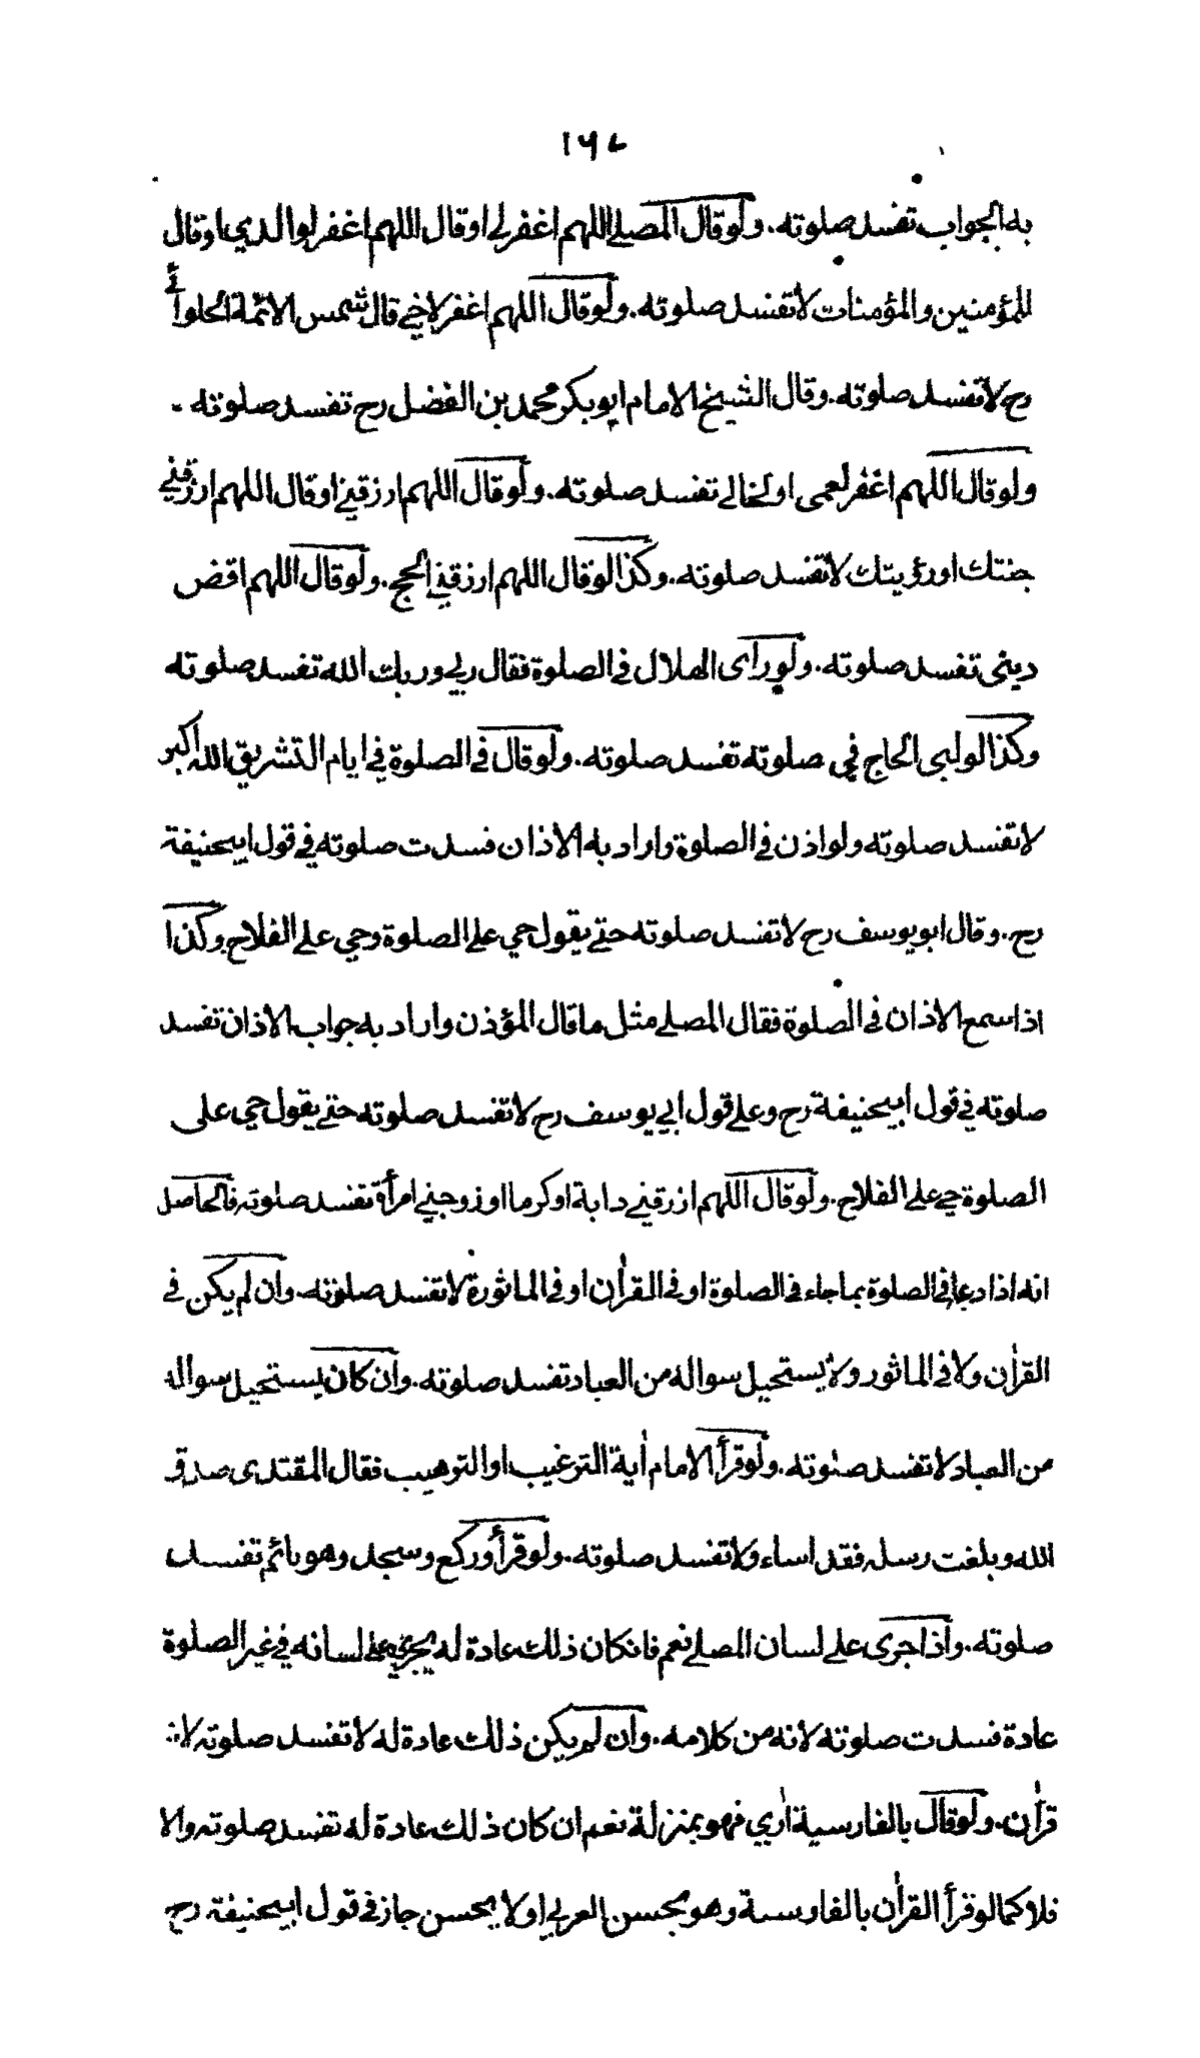 ١٦٧
به الجواب تفسد صلوته. ولو قال المصلے اللهم اغفرلے او قال اللهم اغفر لوالدي او قال
للمؤمنين والمؤمنات لا تفسد صلوته. ولو قال اللهم اغفر لاخے قال شمس الائمة الحلوائے
رح لا تفسد صلوته. وقال الشيخ الامام ابوبكر محمد بن الفضل رح تفسد صلوته -
ولو قال اللهم اغفر لعمی او لخالے تفسد صلوته. ولو قال اللهم ارزقنے او قال اللهم ارزقنے
جنتك او رؤيتك لا تفسد صلوته. وكذا لو قال اللهم ارزقنے الحج. ولو قال اللهم اقض
دينی تفسد صلوته. ولو رای الهلال في الصلوة فقال ربے وربك الله تفسد صلوته
وكذا لو لبی الحاج في صلوته تفسد صلوته. ولو قال في الصلوة في ايام التشريق الله اكبر
لا تفسد صلوته ولو اذن في الصلوة واراد به الاذان فسدت صلوته في قول ابيحنيفة
رح. وقال ابو يوسف رح لا تفسد صلوته حتے يقول حي علے الصلوة وحي علے الفلاح وكذا
اذا سمع الاذان في الصلوة فقال المصلے مثل ما قال المؤذن واراد به جواب الاذان تفسد
صلوته في قول ابيحنيفة رح وعلے قول ابي يوسف رح لا تفسد صلوته حتے يقول حي علی
الصلوة حے علے الفلاح. ولو قال اللهم ارزقنے دابة او كرما او زوجنے امرأة تفسد صلوته فالحاصل
انه اذا دعا في الصلوة بما جاء في الصلوة او في القرآن او في الماثورة لا تفسد صلوته. وان لم يكن في
القرآن ولا في الماثور ولا يستحيل سواله من العباد تفسد صلوته. وان كان يستحيل سواله
من العباد لا تفسد صلوته. ولو قرأ الامام آية الترغيب او الترهيب فقال المقتدی صدق
الله وبلغت رسله فقد اساء ولا تفسد صلوته. ولو قرأ وركع وسجد وهو نائم تفسد
صلوته. واذا جری علے لسان المصلے نعم فان كان ذلك عادة له يجري علے لسانه في غير الصلوة
عادة فسدت صلوته لانه من كلامه. وان لم يكن ذلك عادة له لا تفسد صلوته لانه
قرآن. ولو قال بالفارسية آري فهو بمنزلة نعم ان كان ذلك عادة له تفسد صلوته والا
فلا كما لو قرأ القرآن بالفارسية وهو يحسن العربي او لا يحسن جاز في قول ابيحنيفة رح